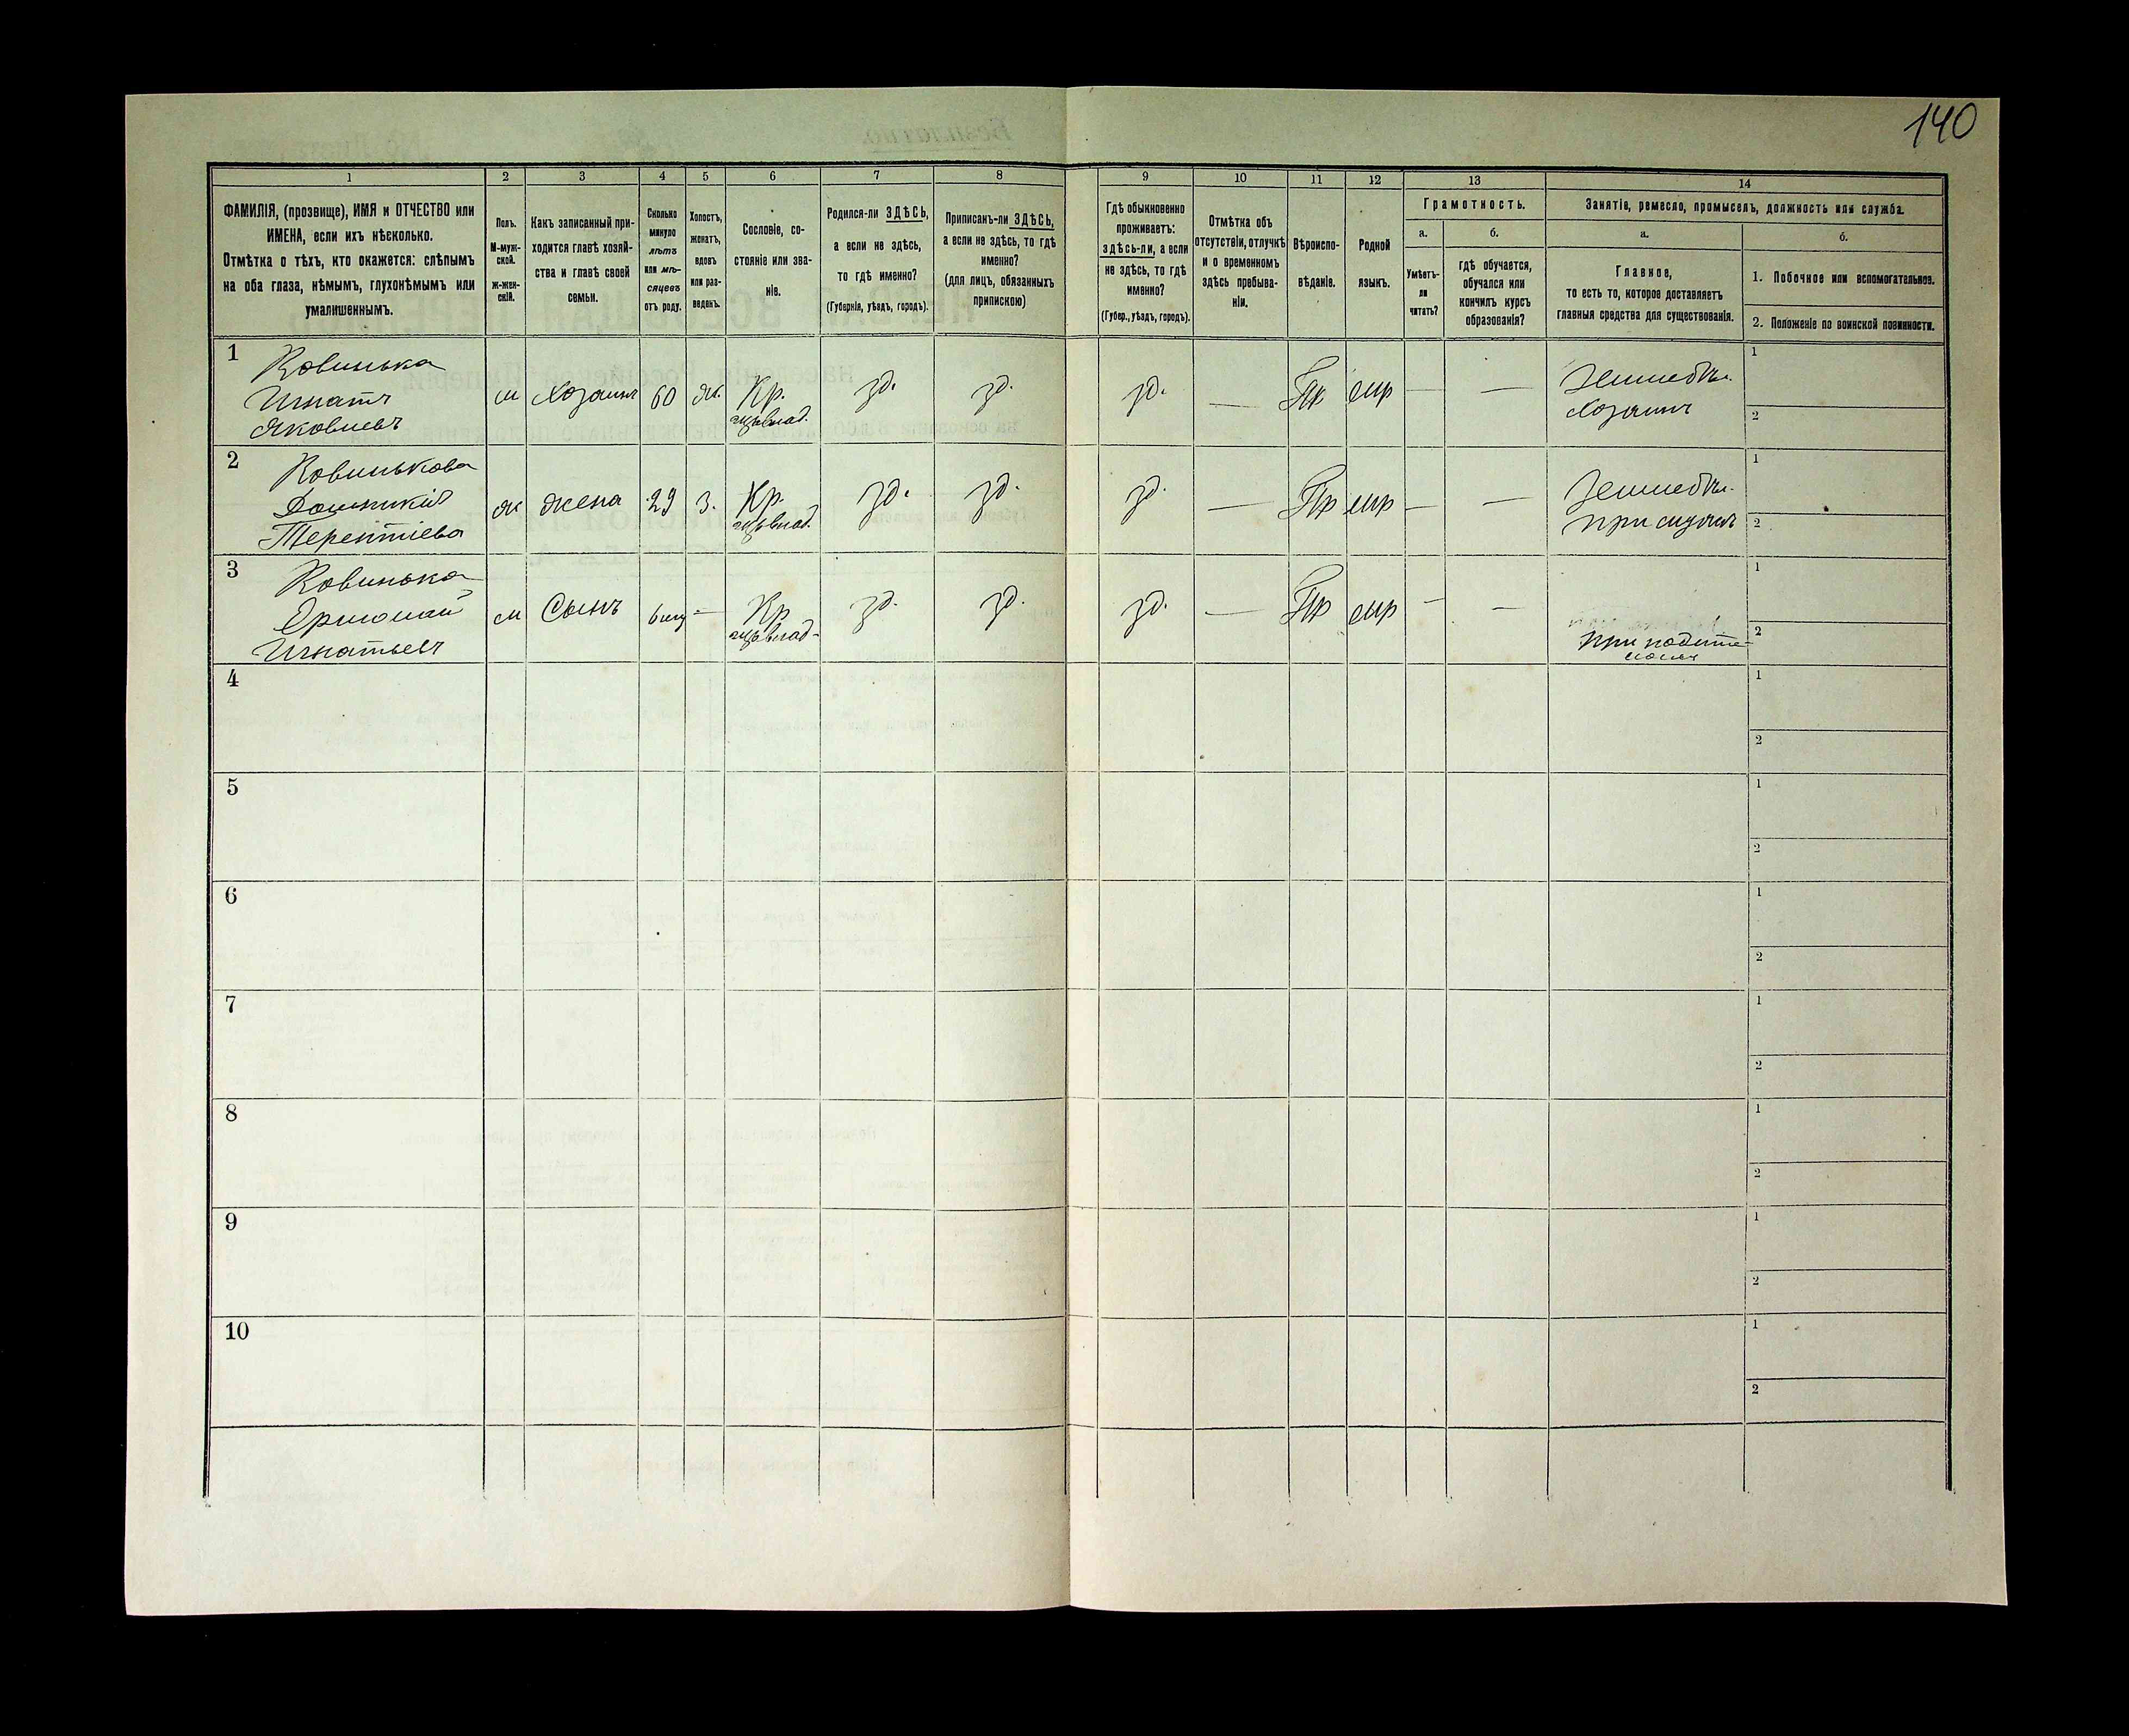 140
1 2 3 4 5 6 7 8 9 10 11 12 13 14
ФАМИЛІЯ, (прозвище), ИМЯ и ОТЧЕСТВО или
ИМЕНА, если ихъ нѣсколько.
Отмѣтка о тѣхъ, кто окажется: слѣпымъ
на оба глаза, нѣмымъ, глухонѣмымъ или
умалишеннымъ.
Полъ.
М-муж-
ской.
ж-жен-
скій.
Какъ записанный при-
ходится главѣ хозяй-
ства и главѣ своей
семьи.
Сколько
минуло
лѣтъ
или мѣ-
сяцевъ
отъ роду.
Холостъ,
женатъ,
вдовъ
или раз-
веденъ.
Сословіе, со-
стояніе или зва-
ніе.
Родился-ли ЗДѢСЬ,
а если не здѣсь,
то гдѣ именно?
(Губернія, уѣздъ, городъ).
Приписанъ-ли ЗДѢСЬ,
а если не здѣсь, то гдѣ
именно?
(для лицъ, обязанныхъ
припискою)
Гдѣ обыкновенно
проживаетъ:
здѣсь-ли, а если
не здѣсь, то гдѣ
именно?
(Губер., уѣздъ, городъ).
Отмѣтка объ
отсутствіи, отлучкѣ
и о временномъ
здѣсь пребыва-
ніи.
Вѣроиспо-
вѣданіе.
Родной
языкъ.
Грамотность.
а.
Умѣетъ-
ли
читать?
б.
гдѣ обучается,
обучался или
кончилъ курсъ
образованія?
Занятіе, ремесло, промыселъ, должность или служба.
а.
Главное,
то есть то, которое доставляетъ
главныя средства для существованія.
б.
1. Побочное или вспомогательное.
2. Положеніе по воинской повинности.
1
Ковинька
Игнатъ
Яковлевъ
м Хозяинъ 60 ж. Кр. зд. зд. зд. — Пр мр — —
Земледѣл.
Хозяинъ
1
2
2
Ковинькова
Терентіева
ж жена 29 з. Кр. зд. зд. зд. — Пр мр — —
Земледѣл.
при мужѣ
1
2
3
Ковинька
Игнатьевъ
м Сынъ — Кр зд. зд. зд. — Пр мр — —
при родите-
ляхъ
1
2
4
1
2
5
1
2
6
1
2
7
1
2
8
1
2
9
1
2
10
1
2